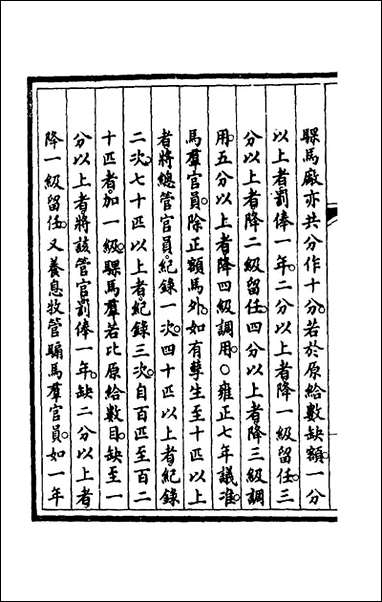 騍馬廠亦共分作十分若於原給數缺額一分
以上者罰俸一年二分以上者降一級留任三
分以上者降二級留任四分以上者降三級調
用五分以上者降四級調用○雍正七年議准
馬羣官員除正額馬外如有孳生至十匹以上
者將總管官員紀錄一次四十匹以上者紀錄
二次七十匹以上者紀錄三次自百匹至百二
十匹者加一級騍馬羣若比原給數目缺至一
分以上者將該管官罰俸一年缺二分以上者
降一級留任又養息牧管騸馬羣官員如一年